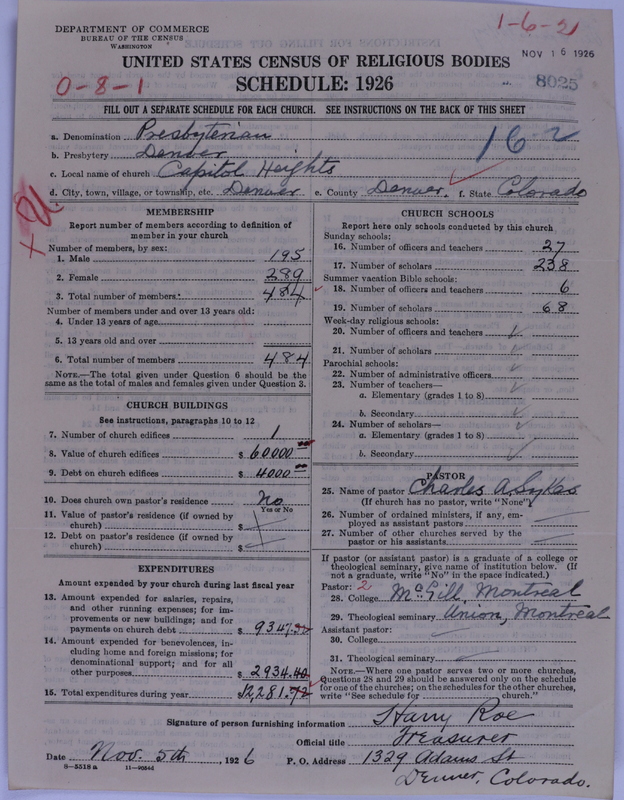 DEPARTMENT OF COMMERCE
BUREAU OF THE CENSUS
WASHINGTON
1-6-21
NOV 16 1926
UNITED STATES CENSUS OF RELIGIOUS BODIES
0-8-1
SCHEDULE: 1926
8025
FILL OUT A SEPARATE SCHEDULE FOR EACH CHURCH. SEE INSTRUCTIONS ON THE BACK OF THIS SHEET
a. Denomination Presbyterian
162
b. Presbytery Denver
c. Local name of church Capitol Heights
d. City, town, village, or township, etc. Denver e. County Denver. f. State Colorado
MEMBERSHIP
Report number of members according to definition of
member in your church
Number of members, by sex:
1. Male 195
2. Female 289
3. Total number of members: 484
Number of members under and over 13 years old:
4. Under 13 years of age
5. 13 years old and over
6. Total number of members 484
NOTE.—The total given under Question 6 should be the
same as the total of males and females given under Question 3.
CHURCH BUILDINGS
See instructions, paragraphs 10 to 12
7. Number of church edifices 1
8. Value of church edifices $ 60000 00
9. Debt on church edifices $ 4000 00
10. Does church own pastor's residence No
Yes or No
11. Value of pastor's residence (if owned by
church) $
12. Debt on pastor's residence (if owned by
church) $
EXPENDITURES
Amount expended by your church during last fiscal year
13. Amount expended for salaries, repairs,
and other running expenses; for im-
provements or new buildings; and for
payments on church debt $ 9347.32
14. Amount expended for benevolences, in-
cluding home and foreign missions; for
denominational support; and for all
other purposes $ 2934.40
15. Total expenditures during year $ 12,281.72
CHURCH SCHOOLS
Report here only schools conducted by this church
Sunday schools:
16. Number of officers and teachers 27
17. Number of scholars 238
Summer vacation Bible schools:
18. Number of officers and teachers 6
19. Number of scholars 68
Week-day religious schools:
20. Number of officers and teachers
21. Number of scholars
Parochial schools:
22. Number of administrative officers
23. Number of teachers—
a. Elementary (grades 1 to 8)
b. Secondary
24. Number of scholars—
a. Elementary (grades 1 to 8)
b. Secondary
PASTOR
25. Name of pastor Charles A. Sykes
(If church has no pastor, write "None")
26. Number of ordained ministers, if any, em-
ployed as assistant pastors
27. Number of other churches served by the
pastor or his assistants
If pastor (or assistant pastor) is a graduate of a college or
theological seminary, give name of institution below. (If
not a graduate, write "No" in the space indicated.)
Pastor: 2
28. College McGill, Montreal
29. Theological seminary Union, Montreal
Assistant pastor:
30. College
31. Theological seminary
NOTE.—Where one pastor serves two or more churches,
Questions 28 and 29 should be answered only on the schedule
for one of the churches; on the schedules for the other churches,
write "See schedule for church."
Signature of person furnishing information Harry Roe
Official title Treasurer
Date Nov. 5th, 1926 P. O. Address 1329 Adams St
8—5518 a 11—9354d
Denver, Colorado.